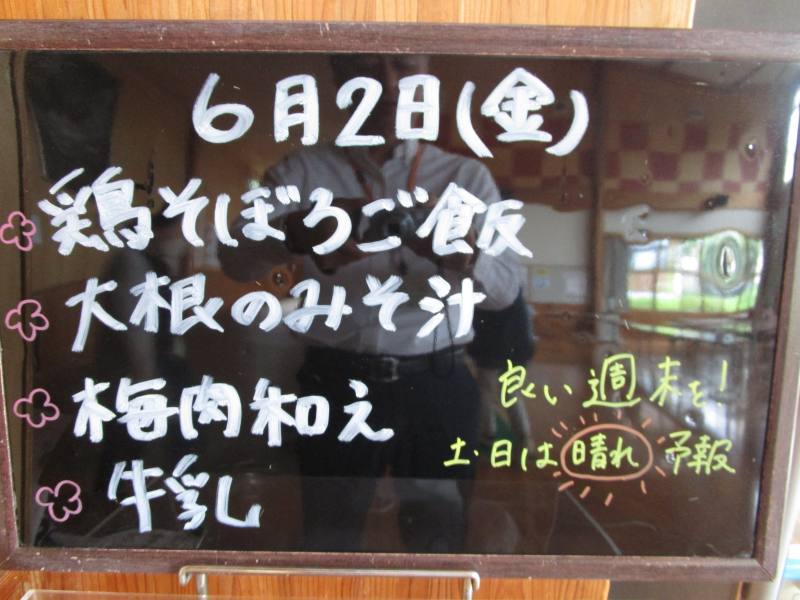 6月2日(金)
鶏そぼろご飯
大根のみそ汁
梅肉和え
牛乳
良い週末を!
土・日は晴れ予報